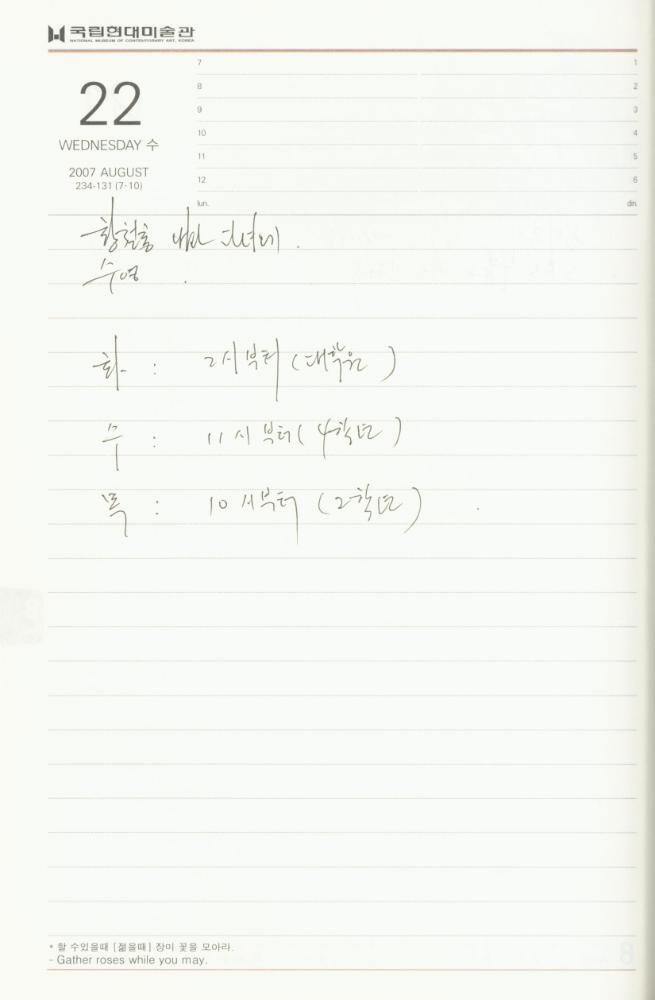 국립현대미술관
NATIONAL MUSEUM OF CONTEMPORARY ART, KOREA
22
WEDNESDAY 수
2007 AUGUST
234-131 (7·10)
7 1
8 2
9 3
10 4
11 5
12 6
lun. din.
다녀옴.
수영.
화 : 2시부터 (대학원)
수 : 11시부터 (4학년)
목 : 10시부터 (2학년).
* 할 수있을때 [젊을때] 장미 꽃을 모아라.
- Gather roses while you may.